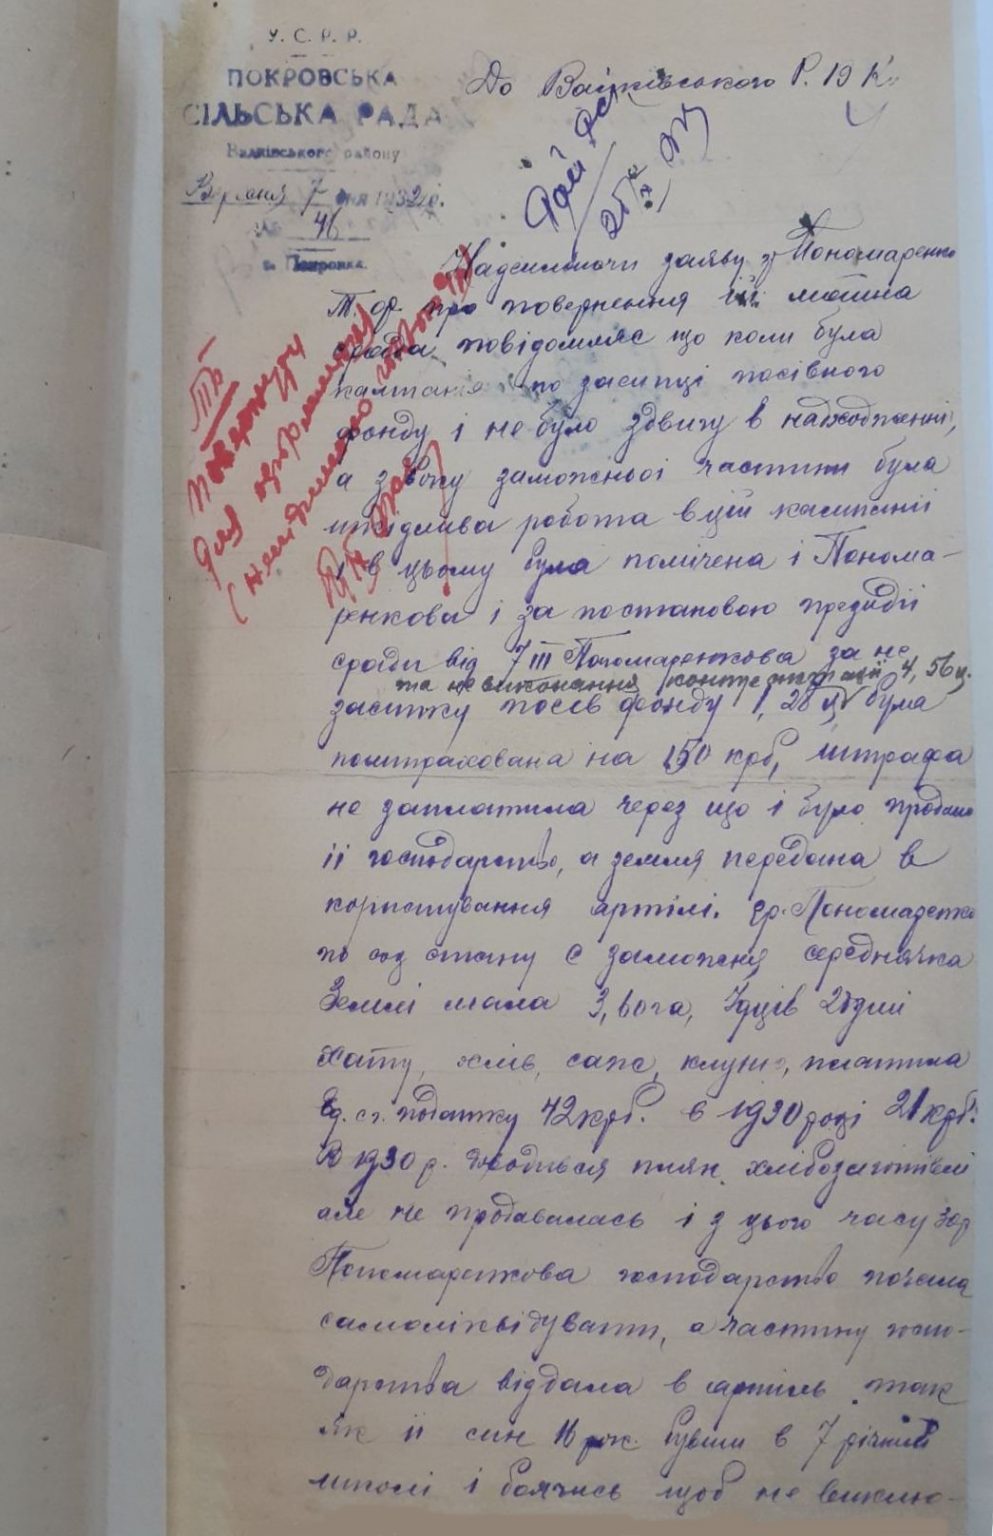 У. С. Р. Р.
ПОКРОВСЬКА
СІЛЬСЬКА РАДА
Валківського району
Вересня 7 дня 1932 р.
№ 46
с. Покровка
До Валківського Р.
Надсилаючи заяву гр Пономаренко
про повернення її майна
срада повідомляє що коли була
кампанія по засипці посівного
фонду і не було здвигу в надходженні,
а з боку заможньої частини була
шкідлива робота в цій кампанії
і в цьому була помічена і Понома-
ренкова і за постановою президії
сради від 7 III Пономаренкова за не
та невиконання контрактації 4, 56 ц.
засипку посів фонду 1, 28 ц була
поштрахована на 150 крб, штрафа
не заплатила через що і було продано
її господарство, а земля передана в
користування артілі. гр. Пономаренко
по стану є заможня середнячка
Землі мала 3, га, їдців 2 душі
Хату, хлів, саж, клуню, платила
с. г. податку 42 крб. в 1930 році 21 крб.
В 1930 р. доводився план хлібозаготівлі
але не продавалась і з цього часу
Пономаренкова господарство почала
самоліквідувати, а частину госпо-
дарства віддала в артіль так
як її син 16 рок. бувши в 7 річній
школі і боячись щоб не виклю-
повернути
для